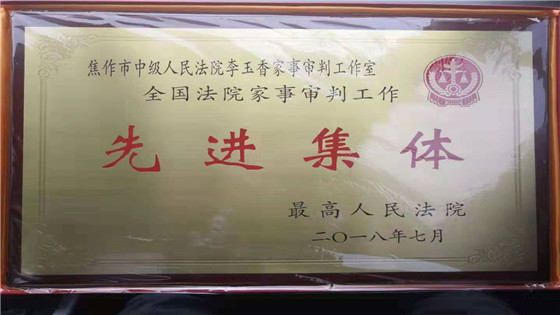 焦作市中级人民法院李玉香家事审判工作室
全国法院家事审判工作
先进集体
最高人民法院
二〇一八年七月